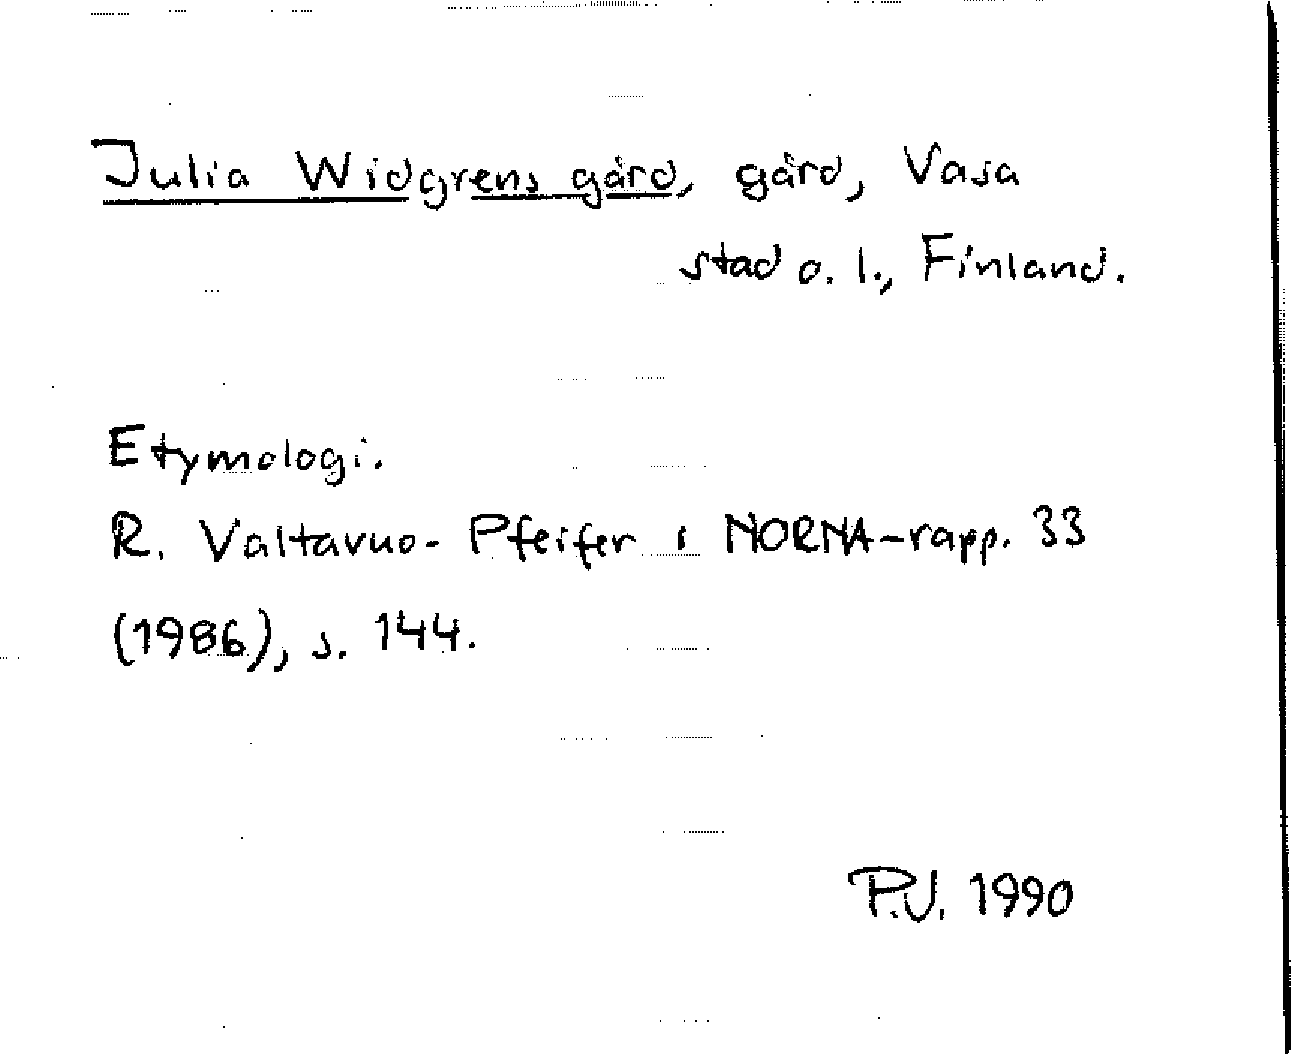 Julia Widgrens gård, gård, Vasa
stad o. l., Finland.
Etymologi.
R. Valtavuo-Pfeifer i NORNA-rapp. 33
(1986), s. 144.
P.J. 1990